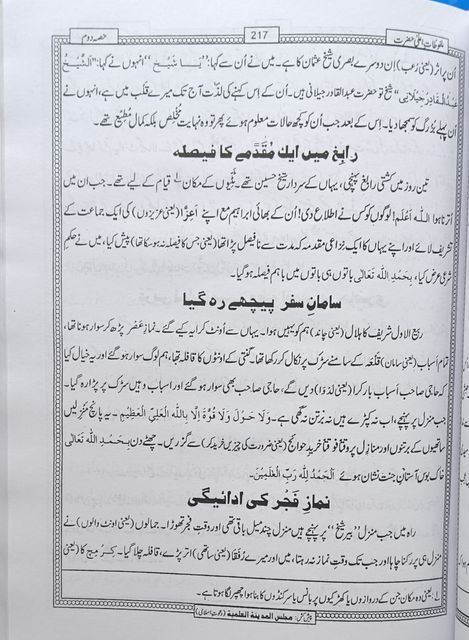 ملفوظات اعلیٰ حضرت 217 حصہ دوم
ان پر اثر (یعنی رُعب) اِن دوسرے بصری شیخ عثمان کا ہے۔ میں نے اُن سے کہا: ”یَا شَیْخُ“ انہوں نے کہا: ”اَلشَّیْخُ
عَبْدُ الْقَادِر جِیْلَانِی“ شیخ تو حضرت عبدالقادر جیلانی ہیں۔ اُن کے اس کہنے کی لذّت آج تک میرے قلب میں ہے، انہوں نے
اُن پہلے بزرگ کو سمجھا دیا۔ اس کے بعد جب اُن کو کچھ حالات معلوم ہوئے پھر تو وہ نہایت مُخْلِص بلکہ کمال مُطِیْع تھے۔
رابغ میں ایک مُقَدَّمے کا فیصلہ
تین روز میں کشتی رابغ پہنچی، یہاں کے سردار شیخ حسین تھے۔ یٹیوں کے مکان ۱؎ قیام کے لیے تھے۔ جب ان میں
اُترنا ہوا اللہ اَعْلَم! لوگوں کو کس نے اطلاع دی! اُن کے بھائی ابراہیم مع اپنے اَعِزَّا (یعنی عزیزوں) کی ایک جماعت کے
تشریف لائے اور اپنے یہاں کا ایک نزاعی مقدمہ کہ مدت سے نافیصل پڑا تھا (یعنی جس کا فیصلہ نہ ہو سکا تھا) پیش کیا، میں نے حکمِ
شرعی عرض کیا، بِحَمْدِ اللہِ تَعَالٰی باتوں ہی باتوں میں باہم فیصلہ ہوگیا۔
سامانِ سفر پیچھے رہ گیا
ربیع الاول شریف کا ہلال (یعنی چاند) ہم کو یہیں ہوا۔ یہاں سے اُونٹ کرایہ کیے گئے۔ نمازِ عَصْر پڑھ کر سوار ہونا تھا،
تمام اَسباب (یعنی سامان) قلعہ کے سامنے سڑک پر نکال کر رکھا تھا۔ گنتی کے اونٹوں کا قافلہ تھا، ہم لوگ سوار ہوگئے اور یہ خیال کیا
کہ حاجی صاحب اَسباب بار کرا (یعنی لدوا) دیں گے، حاجی صاحب بھی سوار ہوگئے اور اسباب وہیں سڑک پر پڑا رہ گیا۔
جب منزل پر پہنچے، اب نہ کپڑے ہیں نہ برتن نہ گھی ہے۔ وَلَا حَوْلَ وَلَا قُوَّۃَ اِلَّا بِاللہِ الْعَلِیِّ الْعَظِیْم۔ یہ پانچ منزلیں
ساتھیوں کے برتنوں اور منازِل پر وقتاً فوقتاً خریدِ حوائج (یعنی ضرورت کی چیزیں خرید کر) سے گزریں۔ چھٹے دن بِحَمْدِ اللہِ تَعَالٰی
خاک بوسِ آستانِ جنت نشان ہوئے اَلْحَمْدُ لِلّٰہِ رَبِّ الْعٰلَمِیْنَ۔
نمازِ فَجْر کی ادائیگی
راہ میں جب منزل ”بیر شیخ“ پر پہنچے ہیں منزل چند میل باقی تھی اور وقتِ فجر تھوڑا۔ جَمَّالوں (یعنی اونٹ والوں) نے
منزل ہی پر رُکنا چاہا اور جب تک وقتِ نماز نہ رہتا، میں اور میرے رُفَقا (یعنی ساتھی) اتر پڑے، قافلہ چلا گیا۔ کِرْمِچ کا (یعنی
۱؎: یعنی وہ مکان جن کے دروازوں یا کھڑکیوں پر بانس یا سرکنڈوں کا بنا ہوا چھپر لگا ہوتا ہے۔
پیش کش: مجلس المدینۃ العلمیۃ (دعوتِ اسلامی)